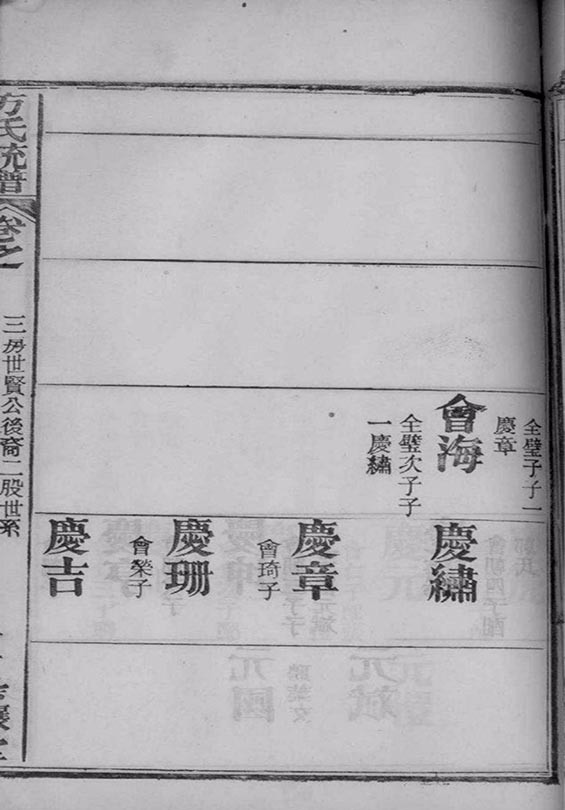 全璧子子一
慶章
會海
全璧次子子
一慶繡
慶繡
慶章
會琦子
慶珊
會榮子
慶吉
方氏統譜
卷之
三房世賢公後裔二股世系